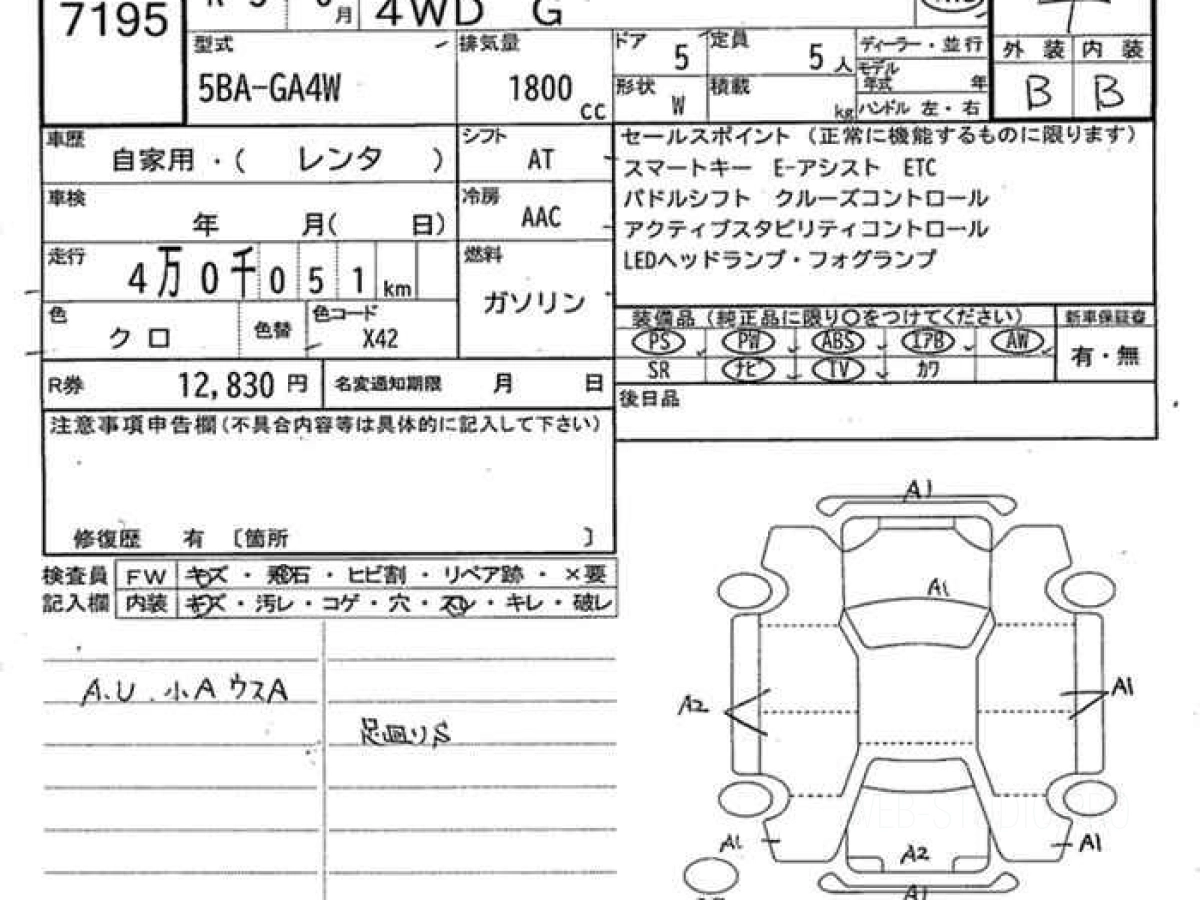 7195
月
4WD G
型式
5BA-GA4W
排気量
1800 cc
ドア 5
定員 5 人
形状 W
積載 kg
ディーラー・並行
モデル年式 年
ハンドル 左・右
外装 内装
B B
車歴 自家用・( レンタ )
シフト AT
車検 年 月( 日)
冷房 AAC
走行 4万0千051km
燃料 ガソリン
色 クロ
色替
色コード X42
セールスポイント (正常に機能するものに限ります)
スマートキー E-アシスト ETC
パドルシフト クルーズコントロール
アクティブスタビリティコントロール
LEDヘッドランプ・フォグランプ
装備品(純正品に限り○をつけてください)
新車保証書
PS PW ABS エアB AW
有・無
SR ナビ TV カワ
R券 12,830 円
名変通知期限 月 日
後日品
注意事項申告欄(不具合内容等は具体的に記入して下さい)
修復歴 有 〔箇所 〕
検査員 FW キズ・飛石・ヒビ割・リペア跡・×要
記入欄 内装 キズ・汚レ・コゲ・穴・スレ・キレ・破レ
A.U.小A ウスA
足回りS
A1
A1
A2
A1
A1
A2
A1
A1